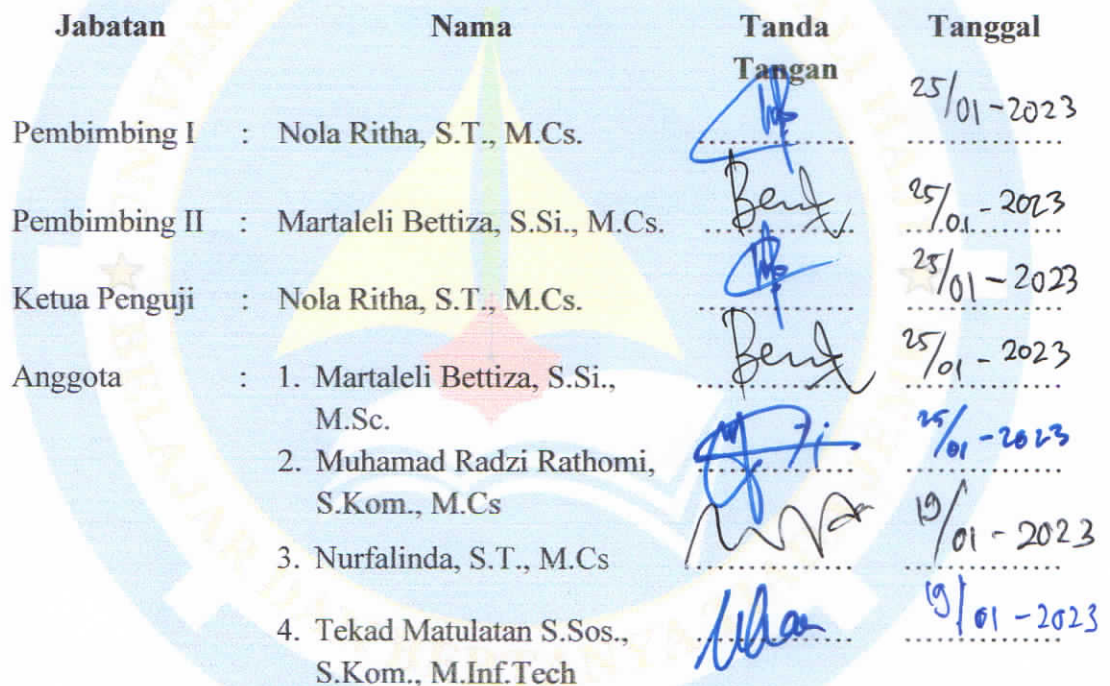 Jabatan Nama Tanda Tanggal
Tangan
Pembimbing I : Nola Ritha, S.T., M.Cs. 25/01-2023
Pembimbing II : Martaleli Bettiza, S.Si., M.Cs. 25/01-2023
Ketua Penguji : Nola Ritha, S.T., M.Cs. 25/01-2023
Anggota : 1. Martaleli Bettiza, S.Si., 25/01-2023
M.Sc.
2. Muhamad Radzi Rathomi, 25/01-2023
S.Kom., M.Cs
3. Nurfalinda, S.T., M.Cs 19/01-2023
4. Tekad Matulatan S.Sos., 19/01-2023
S.Kom., M.Inf.Tech